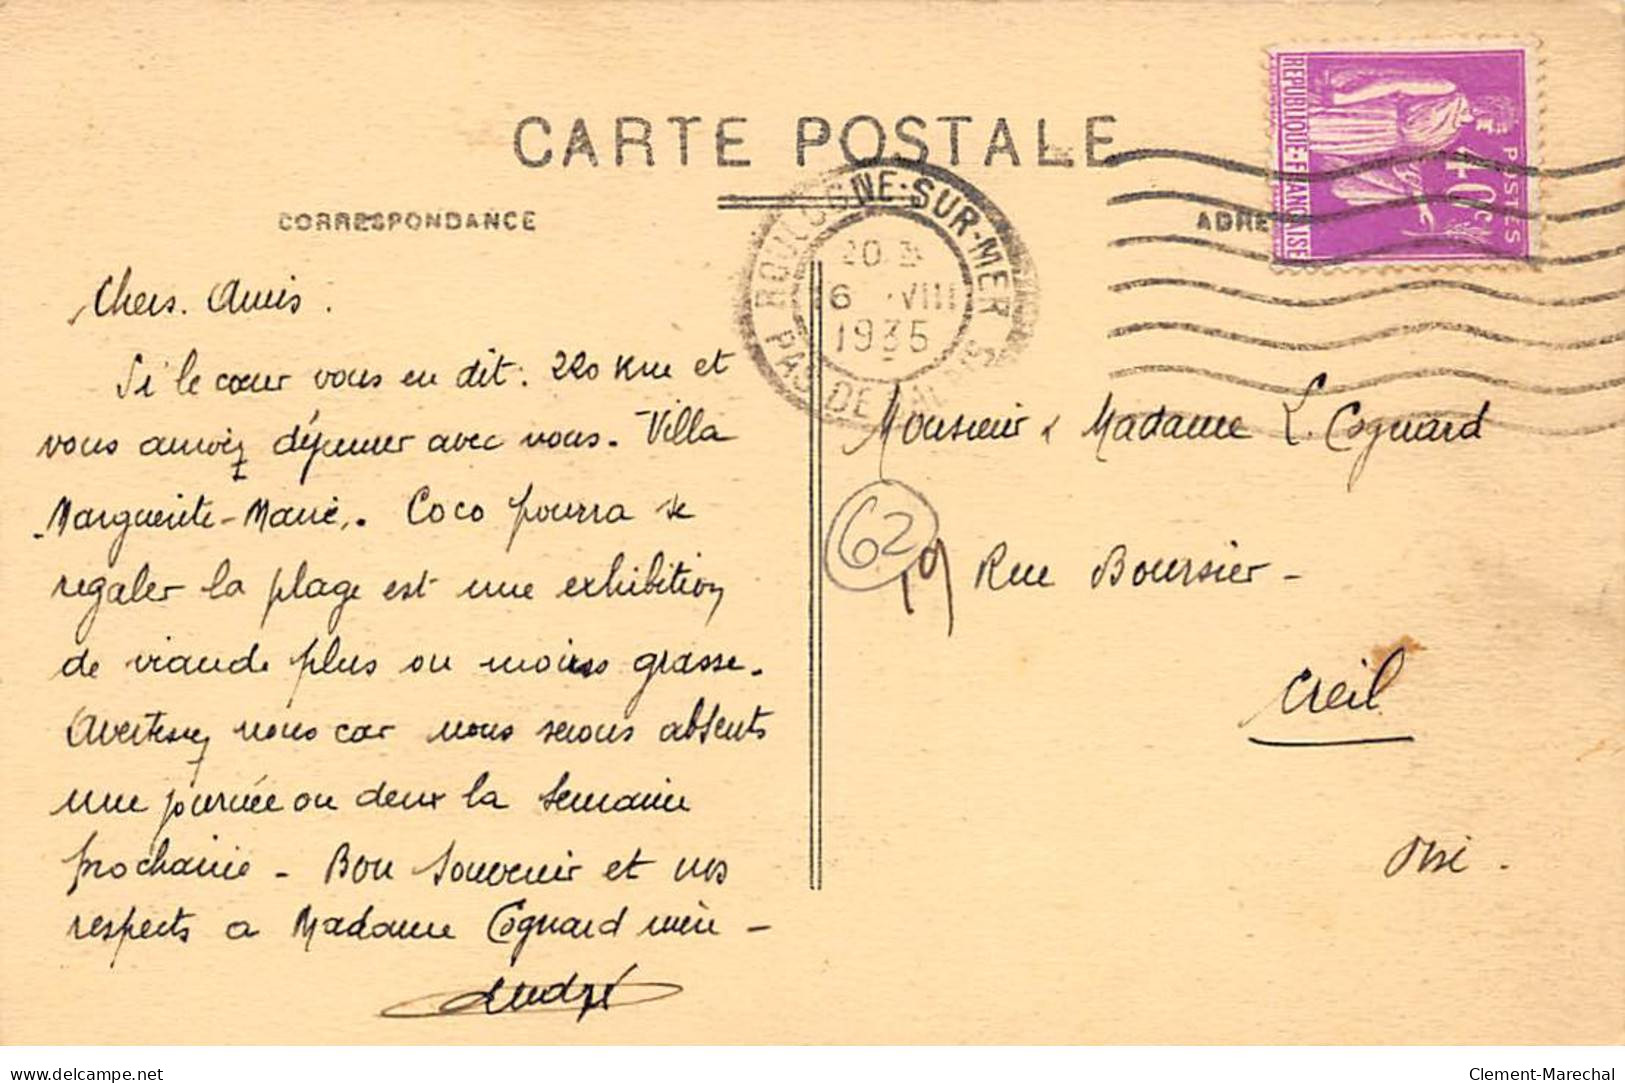 CARTE POSTALE
CORRESPONDANCE
ADRE
REPUBLIQUE·FRANÇAISE
POSTES
40c
BOULOGNE-SUR-MER
20
16 VIII
1935
PAS DE CALAIS
Chers. Amis.
Si le cœur vous en dit: 220 Km et
vous arrivez déjeuner avec nous. Villa
Marguerite-Marie. Coco pourra se
regaler la plage est une exhibition
de viande plus ou moins grasse.
Avertissez nous car nous serons absents
une journée ou deux la semaine
prochaine - Bon souvenir et nos
respects a Madame Cognard mère -
André
Monsieur & Madame L. Cognard
62
19 Rue Boursier -
Creil
Oise.
delcampe.net
Clement-Marechal